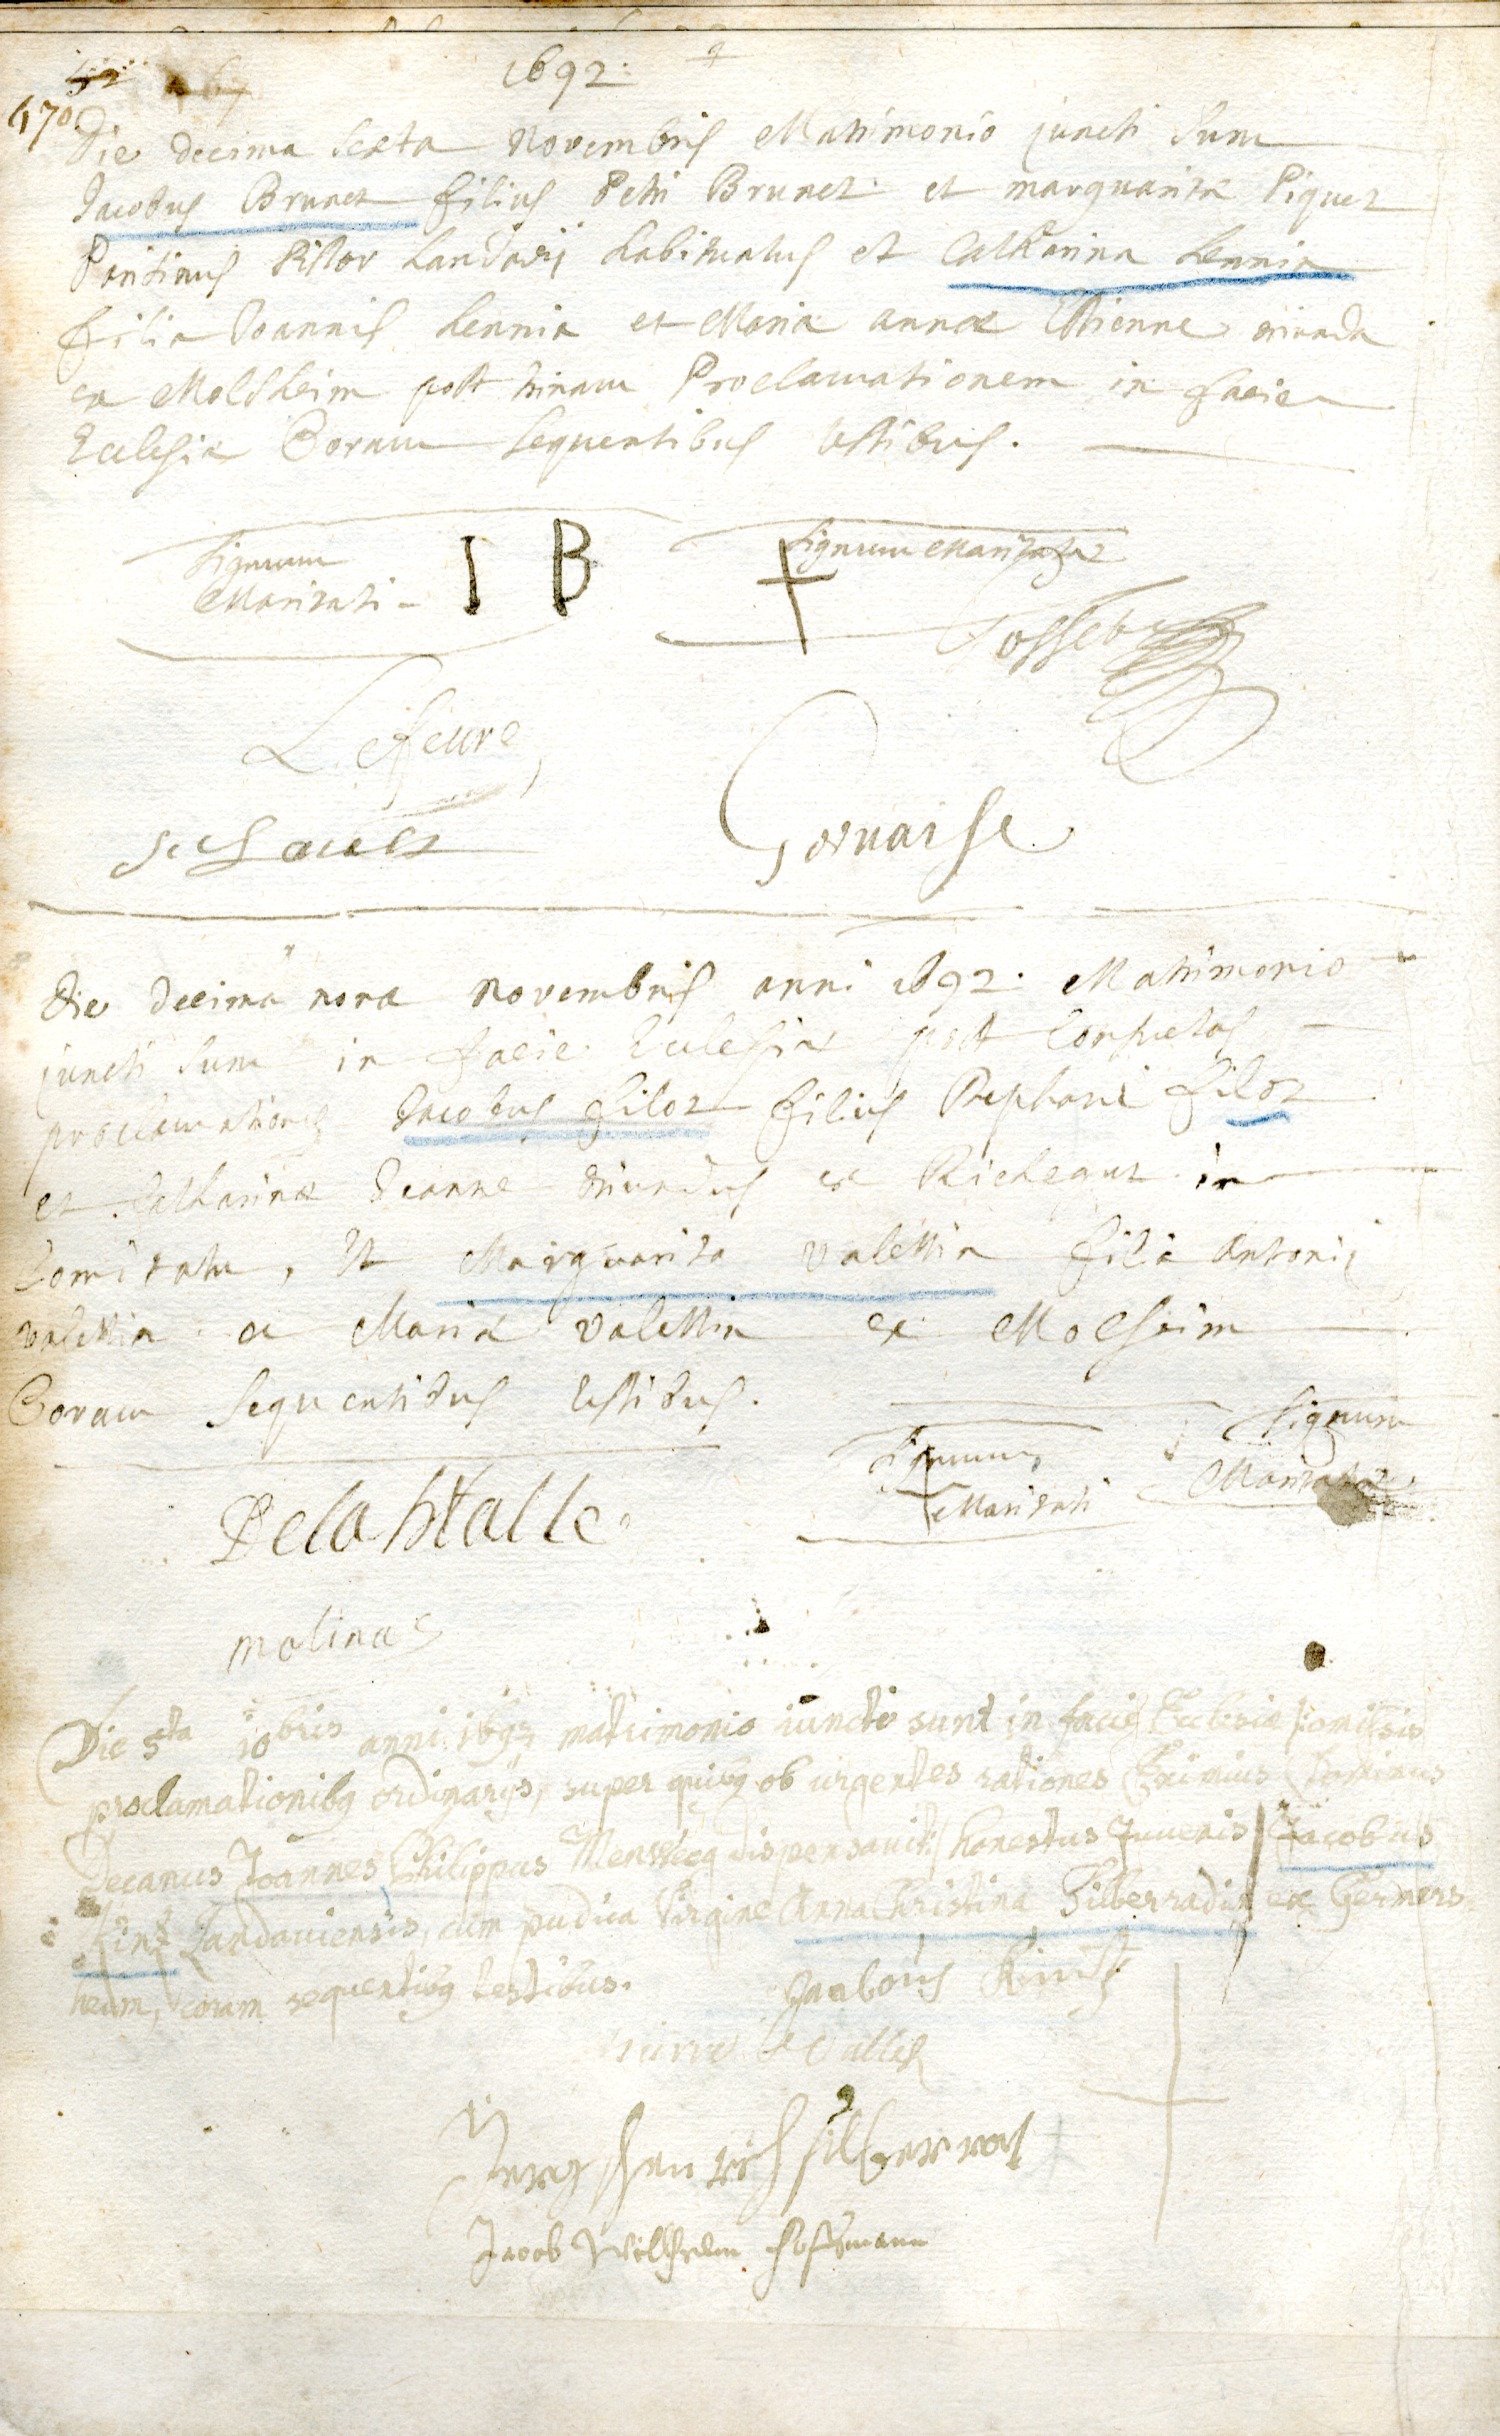 1692.
170.
Die decima sexta Novembris Matrimonio juncti sunt
Jacobus Brunet filius Petri Brunet et marguarita Piquet
Parisinus Pistor Landavij habituatus et Catharina Lennia
filia Joannis Lennia et Maria anna Etienne oriunda
ex Molsheim post trinam Proclamationem in facie
Ecclesiæ Coram sequentibus testibus.
Signum
Maritati
I B
Signum Maritatæ
Fosset
Lefeure
Geruaise
Die decima nona Novembris anni 1692. Matrimonio
juncti sunt in facie Ecclesiæ post Consuetas
proclamationes Jacobus filoz filius Stephani filoz
et Catharinæ Jeanne oriundus ex Richegout in
Comitatu, et Marguarita Valettia filia Antonij
Valettia et Maria Valettia ex Molsheim
Coram sequentibus testibus.
Signum
Maritati
Signum
Maritatæ
De la Halle
molinas
Die 5ta 10bris anni 1692 matrimonio iuncti sunt in facie Ecclesiæ (omissis
proclamationibg ordinarijs, super quibg ob urgentes rationes Eximius Dominus
Decanus Joannes Philippus dispensavit) honestus Juvenis Jacobus
Kintz Landaviensis, cum pudica Virgine Anna Christina Silberradin ex Germers-
heim, coram sequentibg testibus.
Jacobus Kintz
Jerg Henrich Silberrad
Jacob Wilhelm Hoffmann